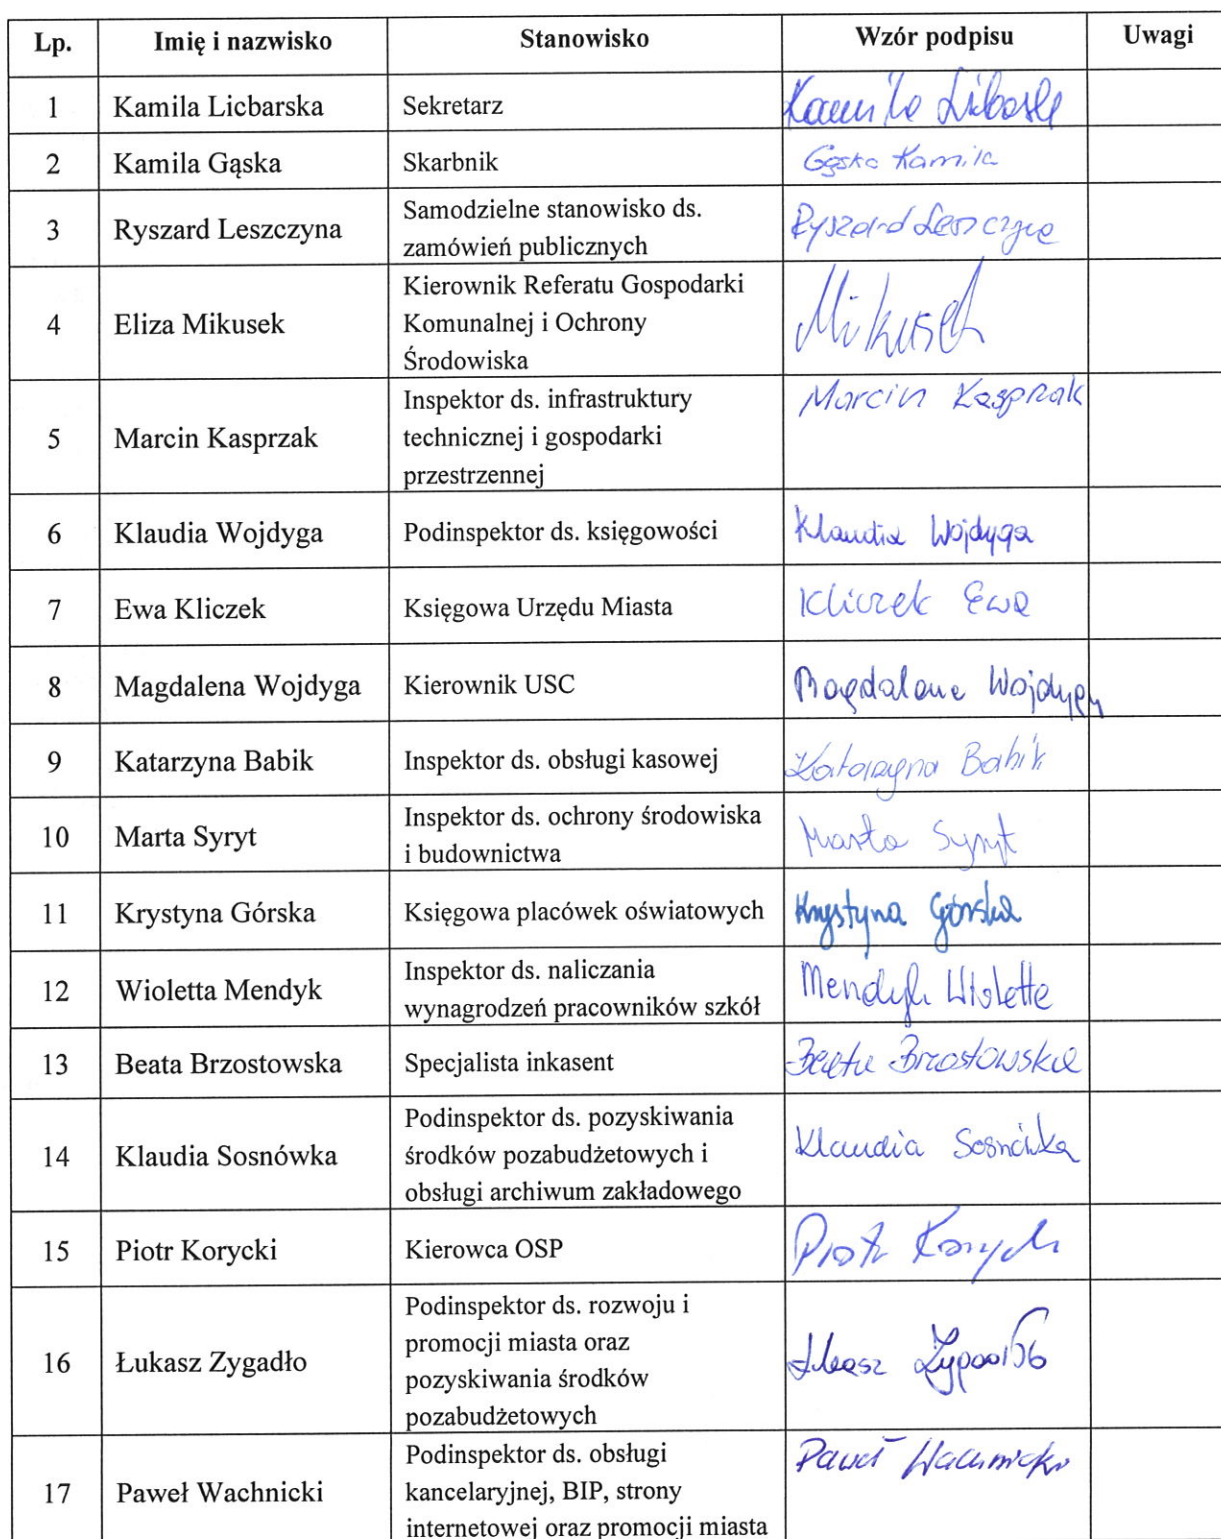 Lp. Imię i nazwisko Stanowisko Wzór podpisu Uwagi
1 Kamila Licbarska Sekretarz Kamila
2 Kamila Gąska Skarbnik Gąska Kamila
3 Ryszard Leszczyna Samodzielne stanowisko ds. Ryszard Leszczyna
zamówień publicznych
4 Eliza Mikusek Kierownik Referatu Gospodarki Mikusek
Komunalnej i Ochrony
Środowiska
5 Marcin Kasprzak Inspektor ds. infrastruktury Marcin Kasprzak
technicznej i gospodarki
przestrzennej
6 Klaudia Wojdyga Podinspektor ds. księgowości Klaudia Wojdyga
7 Ewa Kliczek Księgowa Urzędu Miasta Kliczek Ewa
8 Magdalena Wojdyga Kierownik USC Magdalena Wojdyga
9 Katarzyna Babik Inspektor ds. obsługi kasowej Katarzyna Babik
10 Marta Syryt Inspektor ds. ochrony środowiska Marta Syryt
i budownictwa
11 Krystyna Górska Księgowa placówek oświatowych Krystyna Górska
12 Wioletta Mendyk Inspektor ds. naliczania Mendyk Wioletta
wynagrodzeń pracowników szkół
13 Beata Brzostowska Specjalista inkasent Beata Brzostowska
14 Klaudia Sosnówka Podinspektor ds. pozyskiwania Klaudia Sosnówka
środków pozabudżetowych i
obsługi archiwum zakładowego
15 Piotr Korycki Kierowca OSP Piotr Korycki
16 Łukasz Zygadło Podinspektor ds. rozwoju i Łukasz Zygadło
promocji miasta oraz
pozyskiwania środków
pozabudżetowych
17 Paweł Wachnicki Podinspektor ds. obsługi Paweł Wachnicki
kancelaryjnej, BIP, strony
internetowej oraz promocji miasta